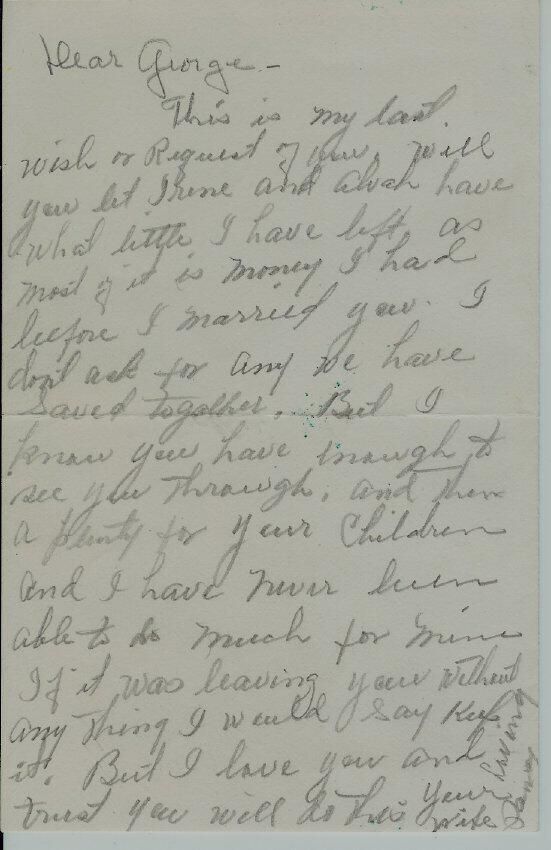 Dear George –
This is my last
wish or Request of you, will
you let Irene and Alvah have
what little I have left, as
most of it is money I had
before I married you. I
don't ask for any we have
saved together. But I
know you have enough to
see you through, and then
a plenty for your Children
and I have never been
able to do much for mine
If it was leaving you without
any thing I would say Keep
it. But I love you and
trust you will do this
Your
Wife